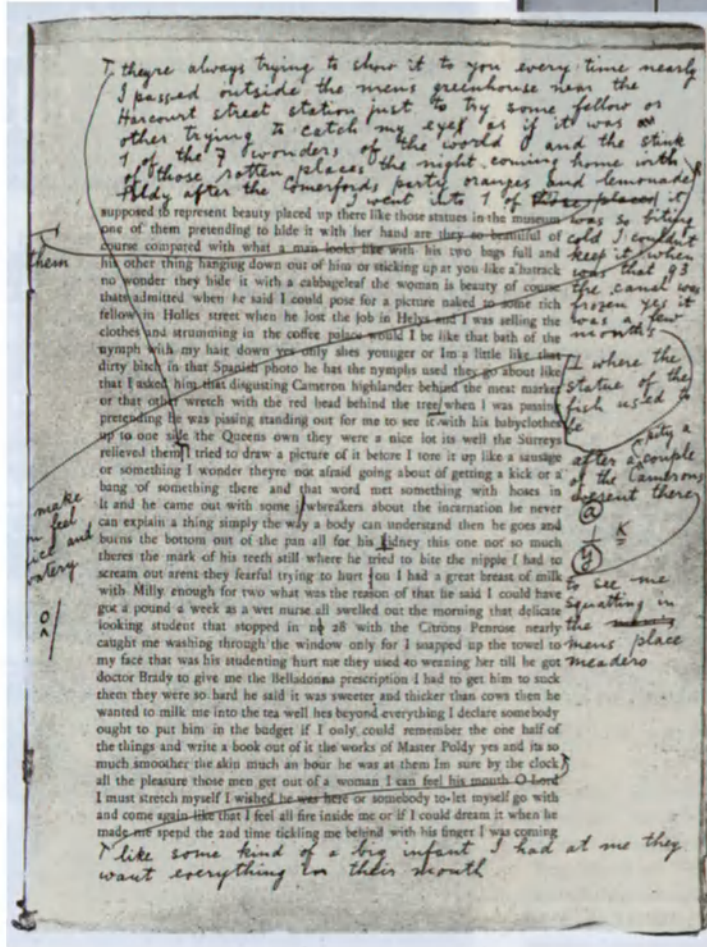 T theyre always trying to show it to you every time nearly
I passed outside the mens greenhouse near the
Harcourt street station just to try some fellow or
other trying to catch my eye as if it was
1 of the 7 wonders of the world O and the stink
of those rotten places the night coming home with
Poldy after the Comerfords party oranges and lemonade
I went into 1 of those places it
was so biting
cold I couldn't
keep it when
was that 93
the canal was
frozen yes it
was a few
months
supposed to represent beauty placed up there like those statues in the museum
one of them pretending to hide it with her hand are they so beautiful of
course compared with what a man looks like with his two bags full and
his other thing hanging down out of him or sticking up at you like a hatrack
no wonder they hide it with a cabbageleaf the woman is beauty of course
thats admitted when he said I could pose for a picture naked to some rich
fellow in Holles street when he lost the job in Helys and I was selling the
clothes and strumming in the coffee palace would I be like that bath of the
nymph with my hair down yes only shes younger or Im a little like that
dirty bitch in that Spanish photo he has the nymphs used they go about like
that I asked him that disgusting Cameron highlander behind the meat market
or that other wretch with the red head behind the tree when I was passing
pretending he was pissing standing out for me to see it with his babyclothes
up to one side the Queens own they were a nice lot its well the Surreys
relieved them I tried to draw a picture of it before I tore it up like a sausage
or something I wonder theyre not afraid going about of getting a kick or a
bang of something there and that word met something with hoses in
It and he came out with some jawbreakers about the incarnation he never
can explain a thing simply the way a body can understand then he goes and
burns the bottom out of the pan all for his kidney this one not so much
theres the mark of his teeth still where he tried to bite the nipple I had to
scream out arent they fearful trying to hurt you I had a great breast of milk
with Milly enough for two what was the reason of that he said I could have
got a pound a week as a wet nurse all swelled out the morning that delicate
looking student that stopped in no 28 with the Citrons Penrose nearly
caught me washing through the window only for I snapped up the towel to
my face that was his studenting hurt me they used to weaning her till he got
doctor Brady to give me the Belladonna prescription I had to get him to suck
them they were so hard he said it was sweeter and thicker than cows then he
wanted to milk me into the tea well hes beyond everything I declare somebody
ought to put him in the budget if I only could remember the one half of
the things and write a book out of it the works of Master Poldy yes and its so
much smoother the skin much an hour he was at them Im sure by the clock
all the pleasure those men get out of a woman I can feel his mouth O Lord
I must stretch myself I wished he was here or somebody to let myself go with
and come again like that I feel all fire inside me or if I could dream it when he
made me spend the 2nd time tickling me behind with his finger I was coming
them
make
feel
nice and
watery
T where the
statue of the
fish used to
be
pity a
after a couple
of the Camerons
werent there
a
K
y
to see me
squatting in
the
mens place
meadero
T like some kind of a big infant I had at me they
want everything in their mouth